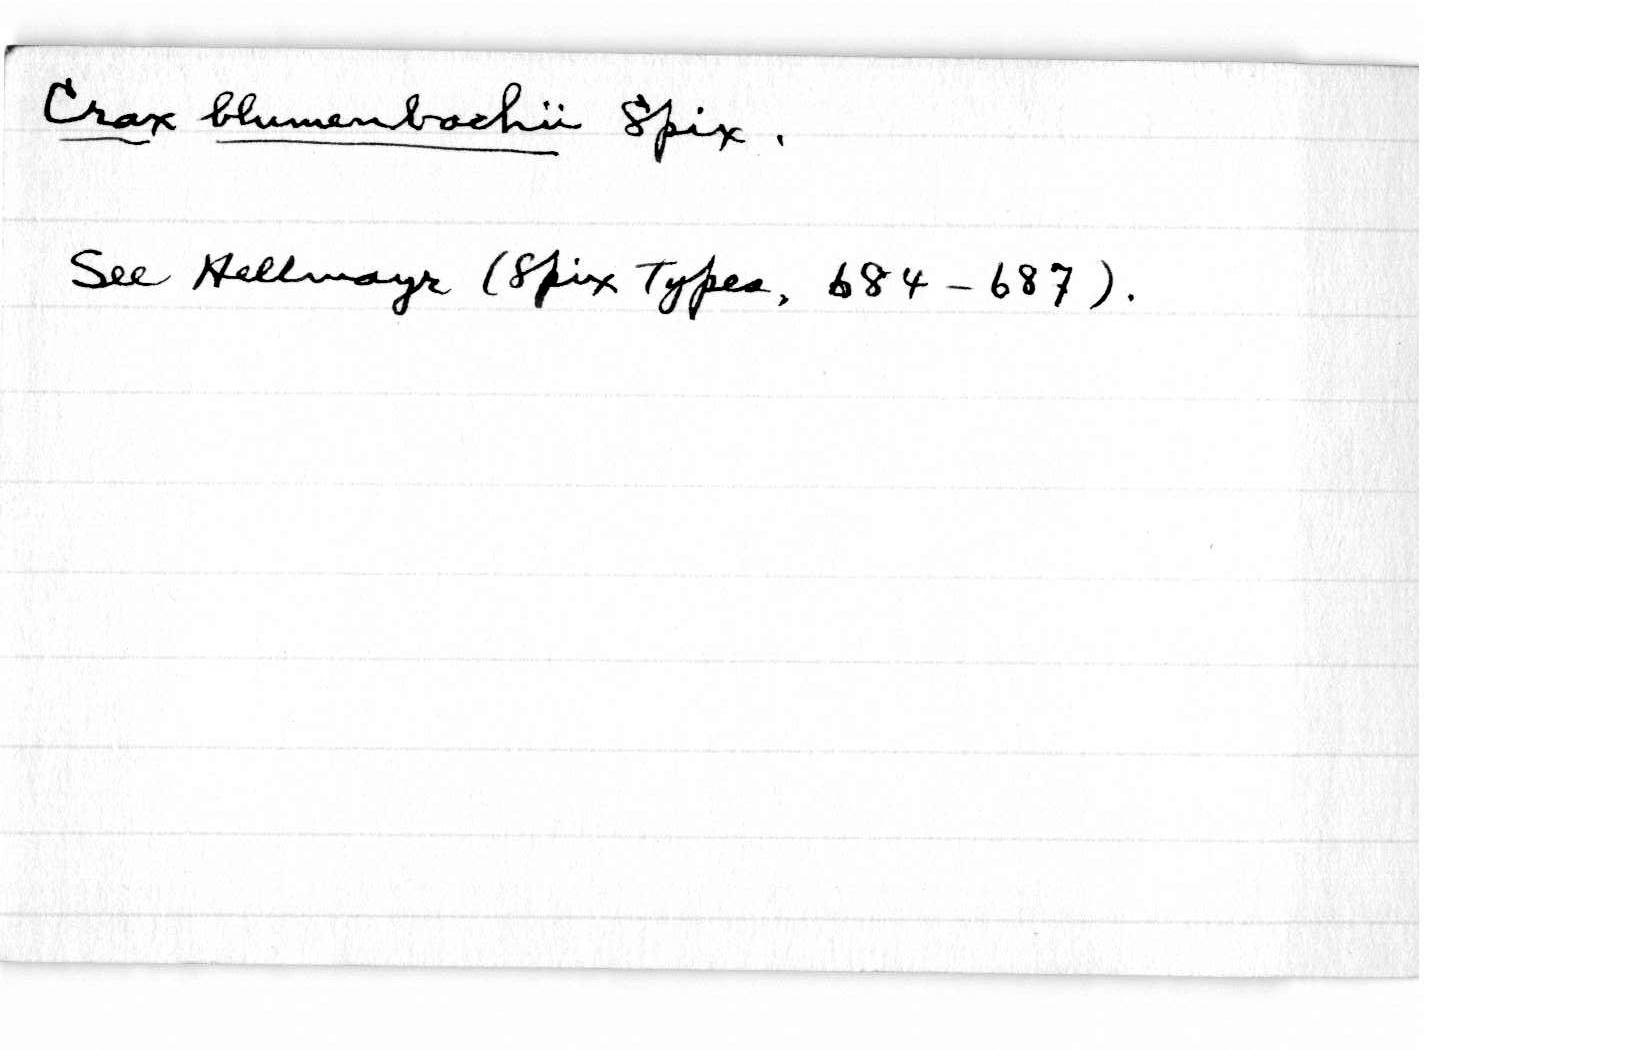 Crax blumenbachii Spix.
See Hellmayr (Spix Types, 684-687).